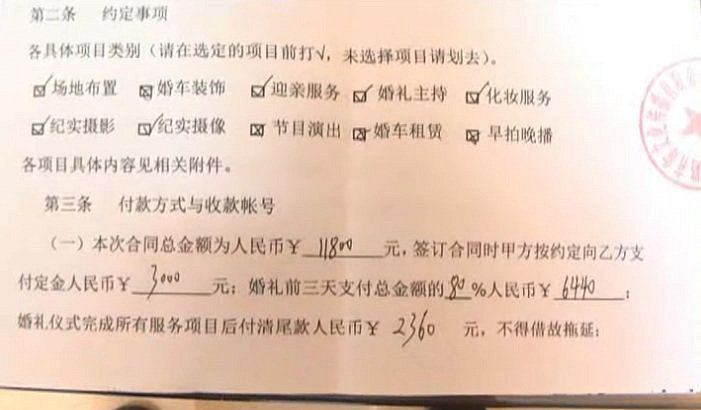 第二条 约定事项
各具体项目类别（请在选定的项目前打√，未选择项目请划去）。
☑场地布置 ☒婚车装饰 ☑迎亲服务 ☑婚礼主持 ☑化妆服务
☑纪实摄影 ☑纪实摄像 ☒节目演出 ☒婚车租赁 ☒早拍晚播
各项目具体内容见相关附件。
第三条 付款方式与收款帐号
（一）本次合同总金额为人民币￥11800元，签订合同时甲方按约定向乙方支
付定金人民币￥3000元；婚礼前三天支付总金额的80%人民币￥6440；
婚礼仪式完成所有服务项目后付清尾款人民币￥2360元，不得借故拖延；